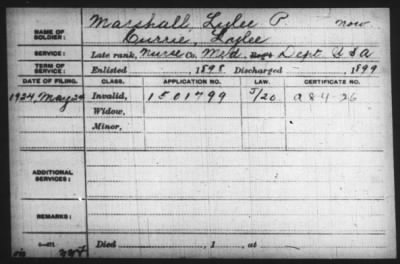 Marshall, Lylee P. now
NAME OF SOLDIER: Currie, Laylee
SERVICE: Late rank, Nurse Co. Med. Regt Dept U S A
TERM OF SERVICE: Enlisted 1898 Discharged 1899
DATE OF FILING. CLASS. APPLICATION NO. LAW. CERTIFICATE NO.
1924, May 24 Invalid, 1501799 5/20 a 84-26
Widow,
Minor,
ADDITIONAL SERVICES:
REMARKS:
Died , 1 , at